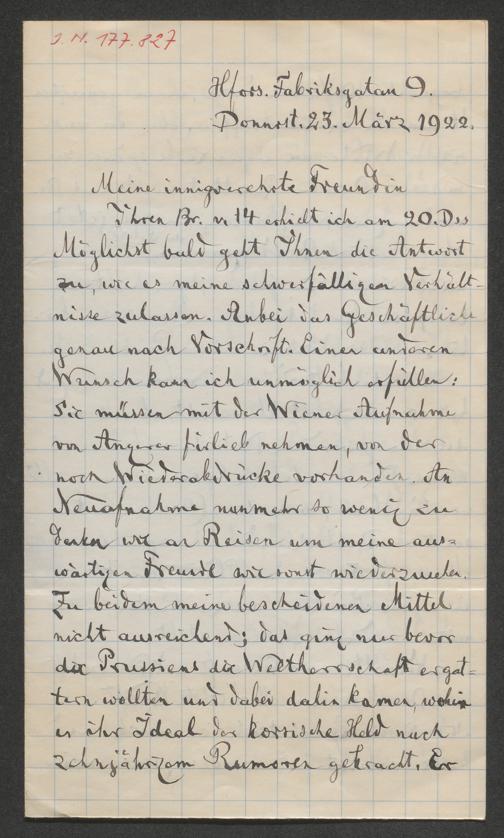 J.N. 177.827
Hfors. Fabriksgatan 9.
Donnrst. 23. März 1922.
Meine innigverehrte Freundin
Ihren Br. v. 14 erhielt ich am 20. Ds
Möglichst bald geht Ihnen die Antwort
zu, wie es meine schwerfälligen Verhält-
nisse zulassen. Anbei das Geschäftliche
genau nach Vorschrift. Einen anderen
Wunsch kann ich unmöglich erfüllen:
Sie müssen mit der Wiener Aufnahme
von Angerer fürlieb nehmen, von der
noch Wiederabdrücke vorhanden. An
Neuaufnahme nunmehr so wenig zu
denken wie an Reisen um meine aus=
wärtigen Freunde wie sonst wiederzusehen.
Zu beidem meine bescheidenen Mittel
nicht ausreichend; das ging nur bevor
die Prussiens die Weltherrschaft ergat=
tern wollten und dabei dahin kamen, wohin
es ihr Ideal der korsische Held nach
zehnjährigem Rumoren gebracht. Er